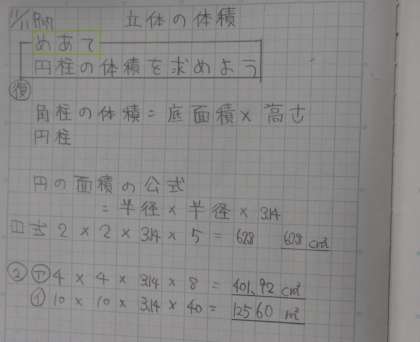 立体の体積
めあて
円柱の体積を求めよう
復
角柱の体積=底面積×高さ
円柱
円の面積の公式
=半径×半径×3.14
式 2×2×3.14×5=62.8 62.8cm³
② ㋐ 4×4×3.14×8=401.92cm³
㋑ 10×10×3.14×40=12560m³